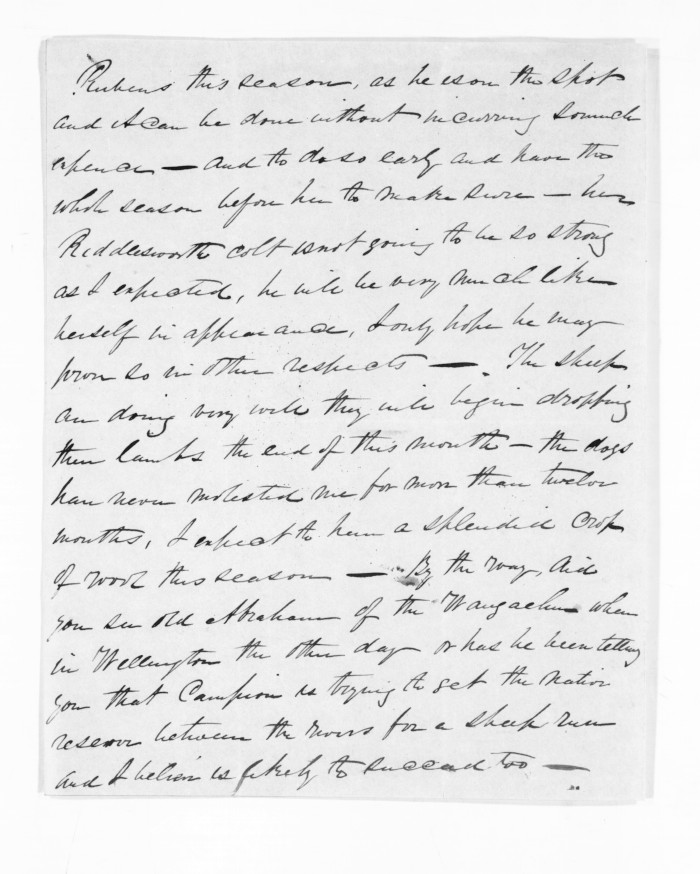 Rubens this season, as he is on the spot
and it can be done without incurring so much
expence — and to do so early and have the
whole season before her to make sure — her
Riddlesworth colt is not going to be so strong
as I expected, he will be very much like
herself in appearance, I only hope he may
prove so in other respects —. The sheep
are doing very well they will begin dropping
their lambs the end of this month — the dogs
have never molested me for more than twelve
months, I expect to have a splendid crop
of wool this season — By the way, did
you see old Abraham of the Wangaehu when
in Wellington the other day or has he been telling
you that Campion is trying to get the native
reserve between the rivers for a sheep run
and I believe is likely to succeed too —